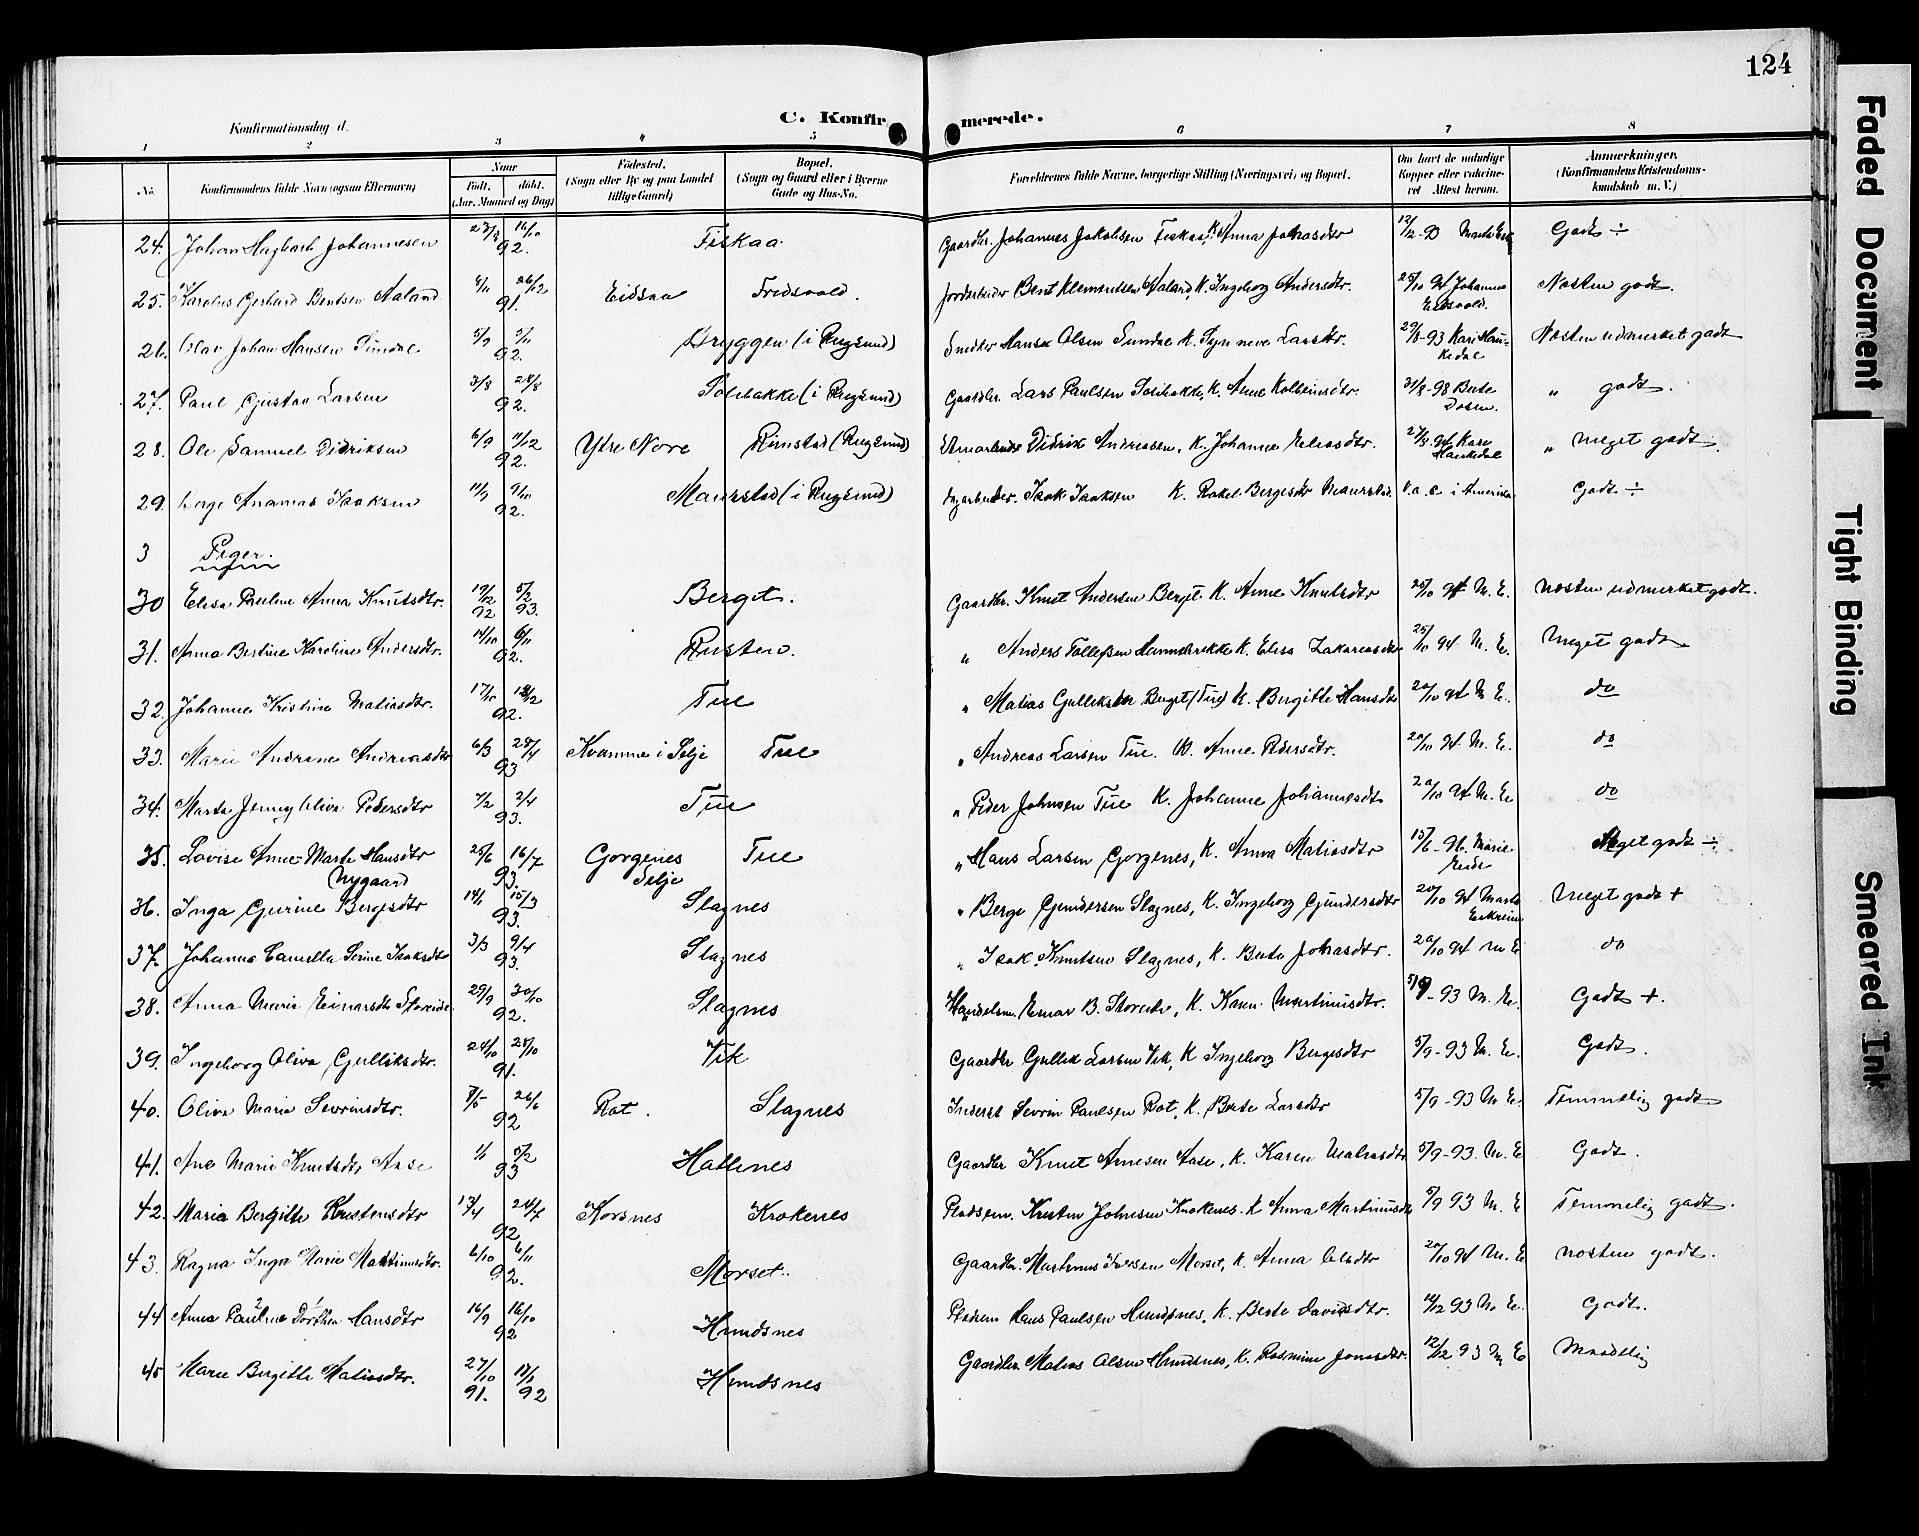 124
C. Konfirmerede.
Konfirmationsdag d.
1 2 3 4 5 6 7 8
No.
Konfirmandens fulde Navn (ogsaa Efternavn)
Naar
født. døbt.
(Aar, Maaned og Dag)
Fødested.
(Sogn eller By og paa Landet
tillige Gaard)
Bopæl.
(Sogn og Gaard eller i Byerne
Gade og Hus-No.
Forældrenes fulde Navne, borgerlige Stilling (Næringsvei) og Bopæl.
Om havt de naturlige
Kopper eller vaksine-
ret Attest herom.
Anmerkninger.
(Konfirmandens Kristendoms-
kundskab m. V.)
24. Johan Johannesen 16/10 92. Fiskaa. Gaardbr. Johannes Jakobsen Fiskaa, K. Anna 12/12-93 Godt ÷
25. Karolus Gerhard Bentsen Aaland 26/12 91. Eidsaa Fredsvold. Jordarbeider Bent Klementsen Aaland, K. Ingeborg Andersdtr. 25/10 94 Johanne Eidsvold. Næsten godt.
26. Olav Johan Hansen Sundal 5/9 92. Bryggen (i Rugsund) Snedker Hans Olsen Sundal K. Synneve Larsdtr. 29/8-93 Kari Haukedal Næsten udmerket godt
27. Paul Gustav Larsen 3/8 28/8 92. Solibakke (i Rugsund) Gaardbr. Lars Paulsen Solibakke, K. Anne Kolbeinsdtr. Berte „ godt.
28. Ole Samuel Didriksen 6/9 11/12 92. Ytre Nore Rimstad (Rugsund) Didrik Andreassen, K. Johanne Eliasdtr. Kari Haukedal „ Meget godt
29. Berge Ananias Isaksen 11/9 9/10 92. Maurstad (i Rugsund) Isak Isaksen K. Rakel Bergesdtr Maurstad. v.a.c. i Amerika Godt ÷
3 Piger.
30 Elisa Pauline Anna Knutsdtr. 19/12 92 5/2 93. Berget. Gaardbr. Knut Andersen Berget K. Anne Knutsdtr 25/10 94 M. E. Næsten udmerket godt.
31. Anna Bertine Karoline Andersdtr. 14/10 6/11 92. Rusten. „ Anders Tollefsen Hammersrekke K. Elisa Zakariasdtr 25/10 94 M. E. Meget godt
32. Johanne Kristine Matiasdtr. 17/10 18/12 92. Tue „ Matias Gulleksen Berget (Tue) K. Bergitte Hansdtr 20/10 94 M E. do
33. Marie Andrine Andreasdtr 6/3 28/4 93 Kvamme i Selje Tue „ Andreas Larsen Tue. K. Anne Pedersdtr. 20/10 94. M. E. do
34. Marta Jenny Olive Pedersdtr 7/2 2/4 93. Tue „ Peder Johnsen Tue K. Johanne Johannesdtr 20/10 94 M. E. do
35. Lovise Anne Marte Hansdtr Nygaard 25/6 16/7 93. Gorgenes Selje Tue „ Hans Larsen Gorgenes, K. Anna Matiasdtr 15/6-96. Marie Eide Meget godt ÷
36. Inga Gurine Bergesdtr 14/1 15/3 93. Slagnes „ Berge Gundersen Slagnes, K. Ingeborg Gundersdtr 20/10 94 Marta Meget godt +
37. Johanne Camilla Serine Isaksdtr 3/3 9/4 93. Slagnes „ Isak Knutsen Slagnes, K. Berte Jonasdtr. 20/10 94 M E do
38. Anna Marie Einarsdtr Storeide 29/9 30/10 92. Slagnes Handelsm. Einar B. Storeide, K. Karen Martinusdtr. 5/9-93 M. E. Godt +.
39. Ingeborg Oliva Gulliksdtr. 24/10 28/10 91. Vik Gaardbr Gullik Larsen Vik, K Ingeborg Bergesdtr 5/9-93 M. E. Godt.
40. Oliva Maria Severinsdtr. 26/6 92 Rot. Slagnes Inderst Sevrin Paulsen Rot, K. Berte Larsdtr 5/9-93 M. E. Temmelig godt
41. Ane Marie Knutsdtr Aase 1/1 5/2 93 Hallenes Gaardbr Knut Arnesen Aase, K. Karen Matiasdtr 5/9-93. M. E Godt.
42. Maria Bergitte Kristensdtr 13/4 24/7 92 Korsnes Krokenes Pladsem. Kristen Johnsen Krokenes. K Anna Martinusdtr 5/9 93 M. E Temmelig godt.
43. Ragna Inga Marie Martinusdtr. 6/10 6/11 92. Morset. Gaardbr. Martinus Iversen Morset, K. Anna Olsdtr 20/10 94 M. E Næsten godt.
44 Anna Pauline Dorthea Hansdtr 16/9 16/10 92 Hundsnes Pladsem Hans Paulsen Hundsnes, K. Berte Davidsdtr. 93 M. E. Godt.
45 Marie Bergitte Matiasdtr. 27/10 91. 17/1 92 Hundsnes Gaardbr. Matias Olsen Hundsnes, K. Rasmine Jonasdtr. 12/12 93 M E Maadelig
Faded Document
Tight Binding
Smeared Ink